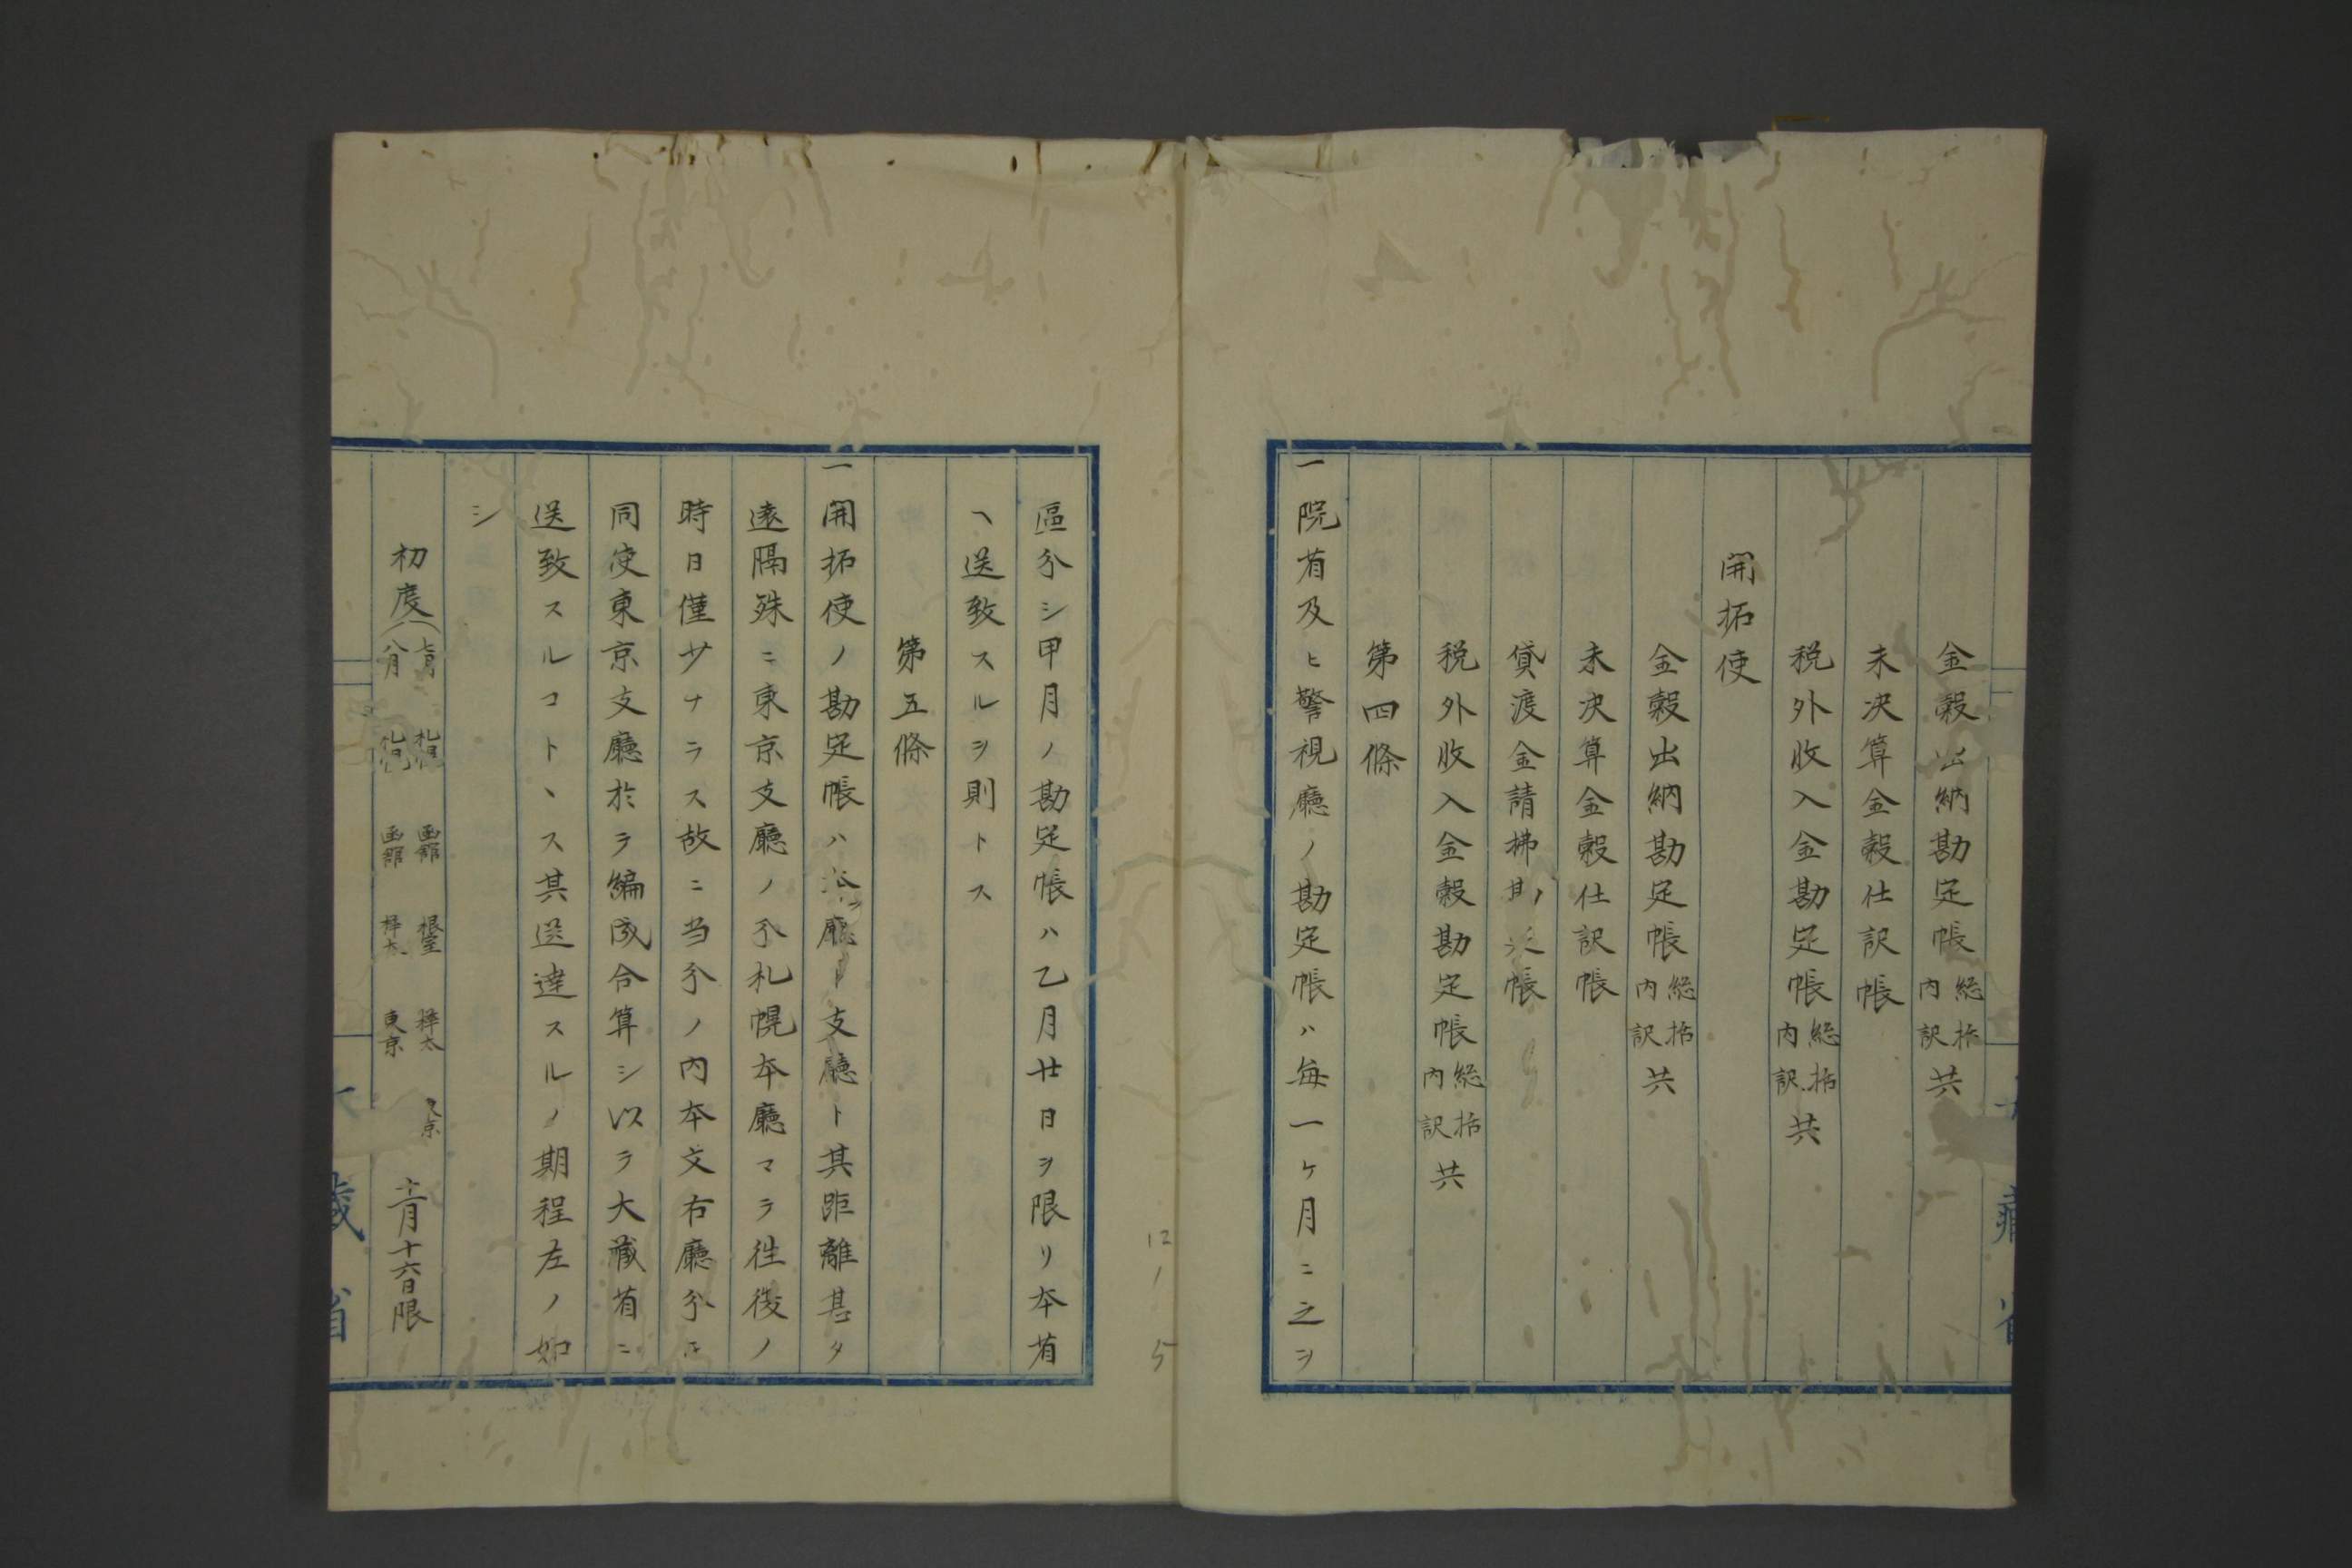 金穀出納勘定帳 総括内訳共
未決算金穀仕訳帳
税外收入金勘定帳 総括内訳共
開拓使
金穀出納勘定帳 総括内訳共
未决算金穀仕訳帳
貸渡金請拂勘定帳
税外收入金穀勘定帳 総括内訳共
第四條
一院省及ヒ警視廳ノ勘定帳ハ毎一ケ月ニ之ヲ
區分シ甲月ノ勘定帳ハ乙月廿日ヲ限リ本省
ヘ送致スルヲ則トス
第五條
一開拓使ノ勘定帳ハ本廳ト支廳ト其距離甚タ
遠隔殊ニ東京支廳ノ分札幌本廳マテ往復ノ
時日僅少ナラス故ニ当分ノ内本文右廳分ヲ
同使東京支廳於テ編成合算シ以テ大藏省ニ
送致スルコトヽス其送達スルノ期程左ノ如
シ
初度 七月 札幌 函館 根室 樺太 東京
八月 札幌 函館 樺太 東京
十二月十六日限
大藏省
12
1
5